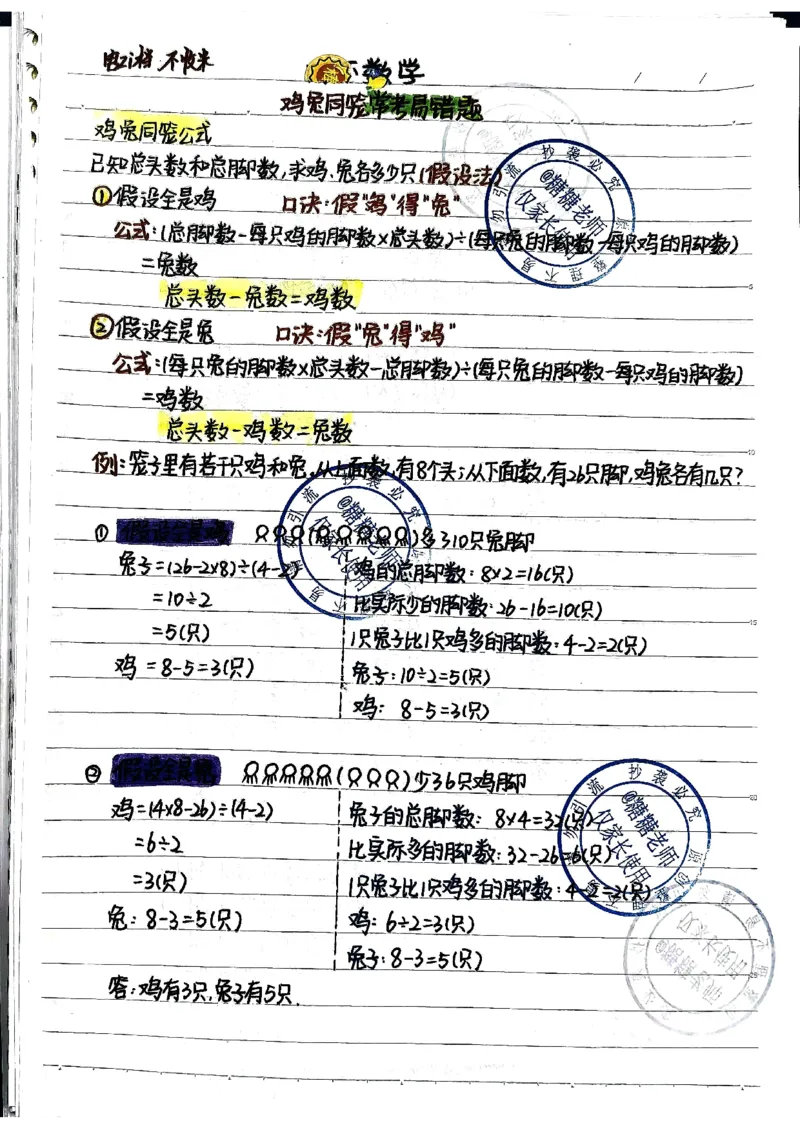 数学
鸡兔同笼常考易错题
鸡兔同笼公式
已知总头数和总脚数,求鸡、兔各多少只(假设法)
①假设全是鸡 口诀:假"鸡"得"兔"
公式:(总脚数-每只鸡的脚数×总头数)÷(每只兔的脚数-每只鸡的脚数)
=兔数
总头数-兔数=鸡数
②假设全是兔 口诀:假"兔"得"鸡"
公式:(每只兔的脚数×总头数-总脚数)÷(每只兔的脚数-每只鸡的脚数)
=鸡数
总头数-鸡数=兔数
例:笼子里有若干只鸡和兔,从上面数,有8个头;从下面数,有26只脚,鸡兔各有几只?
① 假设全是鸡 多了10只兔脚
兔子=(26-2×8)÷(4-2)
=10÷2
=5(只)
鸡 =8-5=3(只)
鸡的总脚数:8×2=16(只)
比实际少的脚数:26-16=10(只)
1只兔子比1只鸡多的脚数:4-2=2(只)
兔子:10÷2=5(只)
鸡: 8-5=3(只)
② 假设全是兔 少了6只鸡脚
鸡=(4×8-26)÷(4-2)
=6÷2
=3(只)
兔:8-3=5(只)
兔子的总脚数: 8×4=32(只)
比实际多的脚数:32-26=6(只)
1只兔子比1只鸡多的脚数:4-2=3(只)
鸡:6÷2=3(只)
兔子:8-3=5(只)
答:鸡有3只,兔子有5只.
抄袭必究
@糖糖老师
仅家长使用